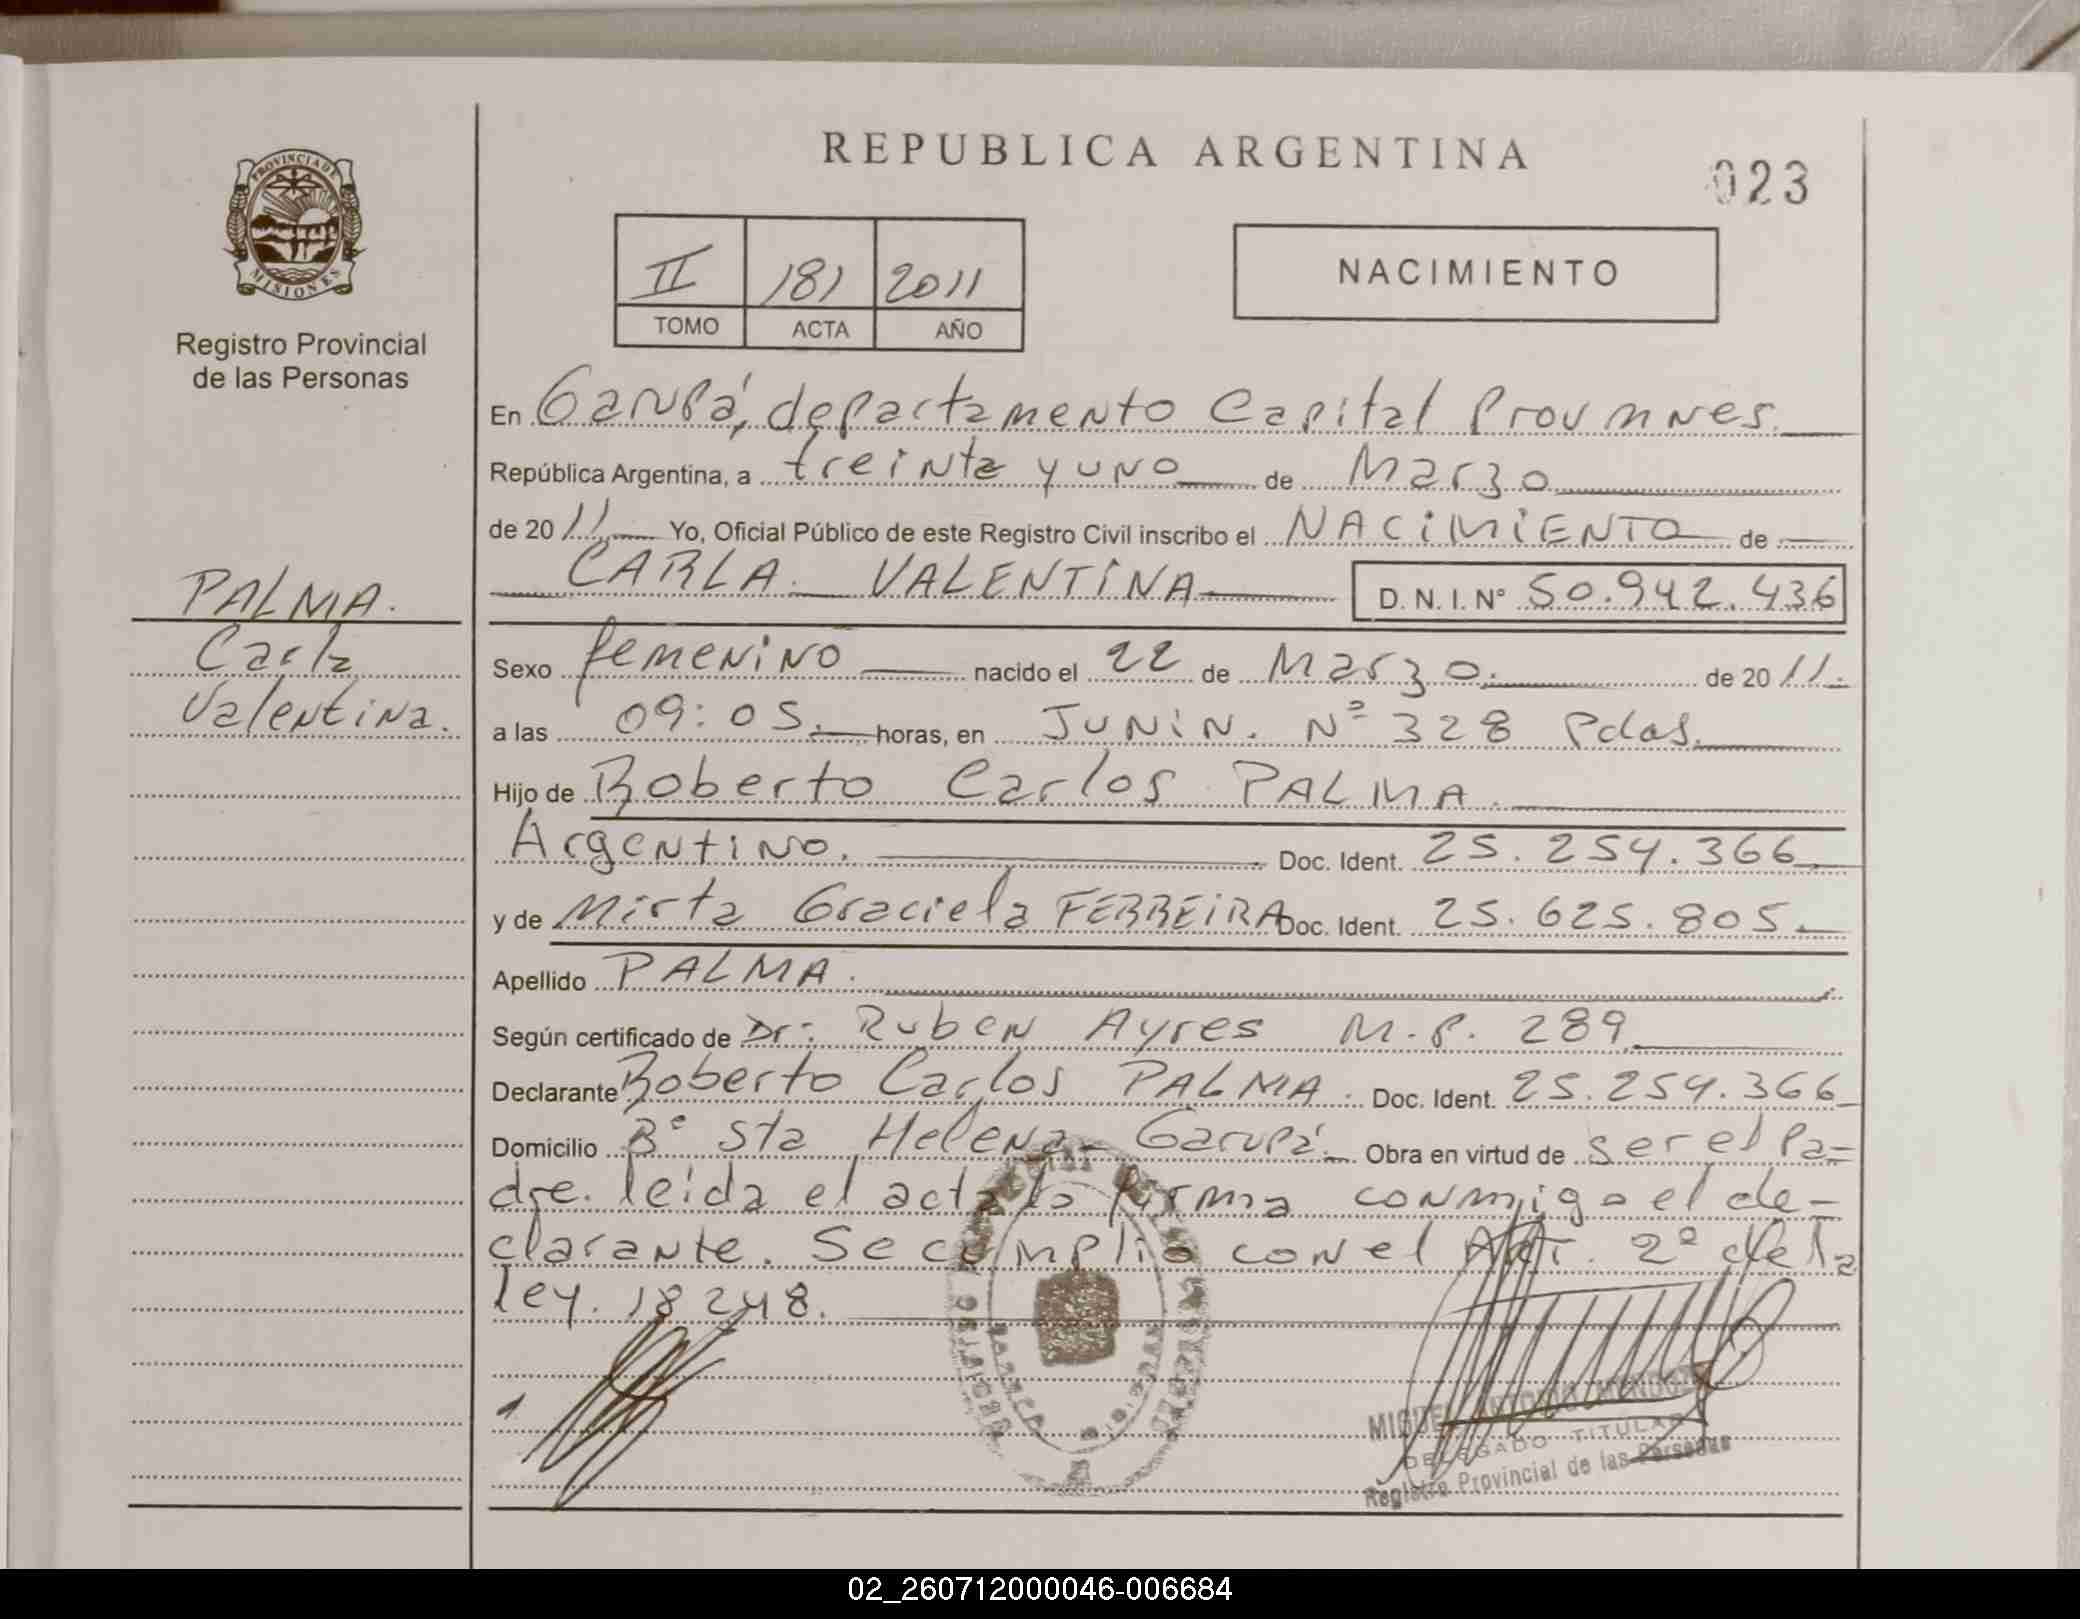 REPUBLICA ARGENTINA
023
PROVINCIA DE
MISIONES
Registro Provincial
de las Personas
II 181 2011
TOMO ACTA AÑO
NACIMIENTO
En Garupá, departamento Capital Prov Mnes.
República Argentina, a treinta y uno de Marzo
de 2011 Yo, Oficial Público de este Registro Civil inscribo el NACIMIENTO de
CARLA VALENTINA D. N. I. N° 50.942.436
PALMA.
Carla
Valentina.
Sexo femenino nacido el 22 de Marzo. de 2011.
a las 09:05. horas, en JUNIN. Nº 328 Pdas.
Hijo de Roberto Carlos PALMA.
Argentino. Doc. Ident. 25.254.366
y de Mirta Graciela FERREIRA Doc. Ident. 25.625.805.
Apellido PALMA.
Según certificado de Dr: Ruben Ayres M.P. 289
Declarante Roberto Carlos PALMA. Doc. Ident. 25.254.366
Domicilio Bº Sta Helena - Garupá. Obra en virtud de ser el Pa-
dre. leida el acta la firma conmigo el de-
clarante. Se cumplió con el Art. 2º de la
ley. 18248.
MIGUEL ANTONIO MENDOZA
DELEGADO TITULAR
Registro Provincial de las Personas
02_260712000046-006684